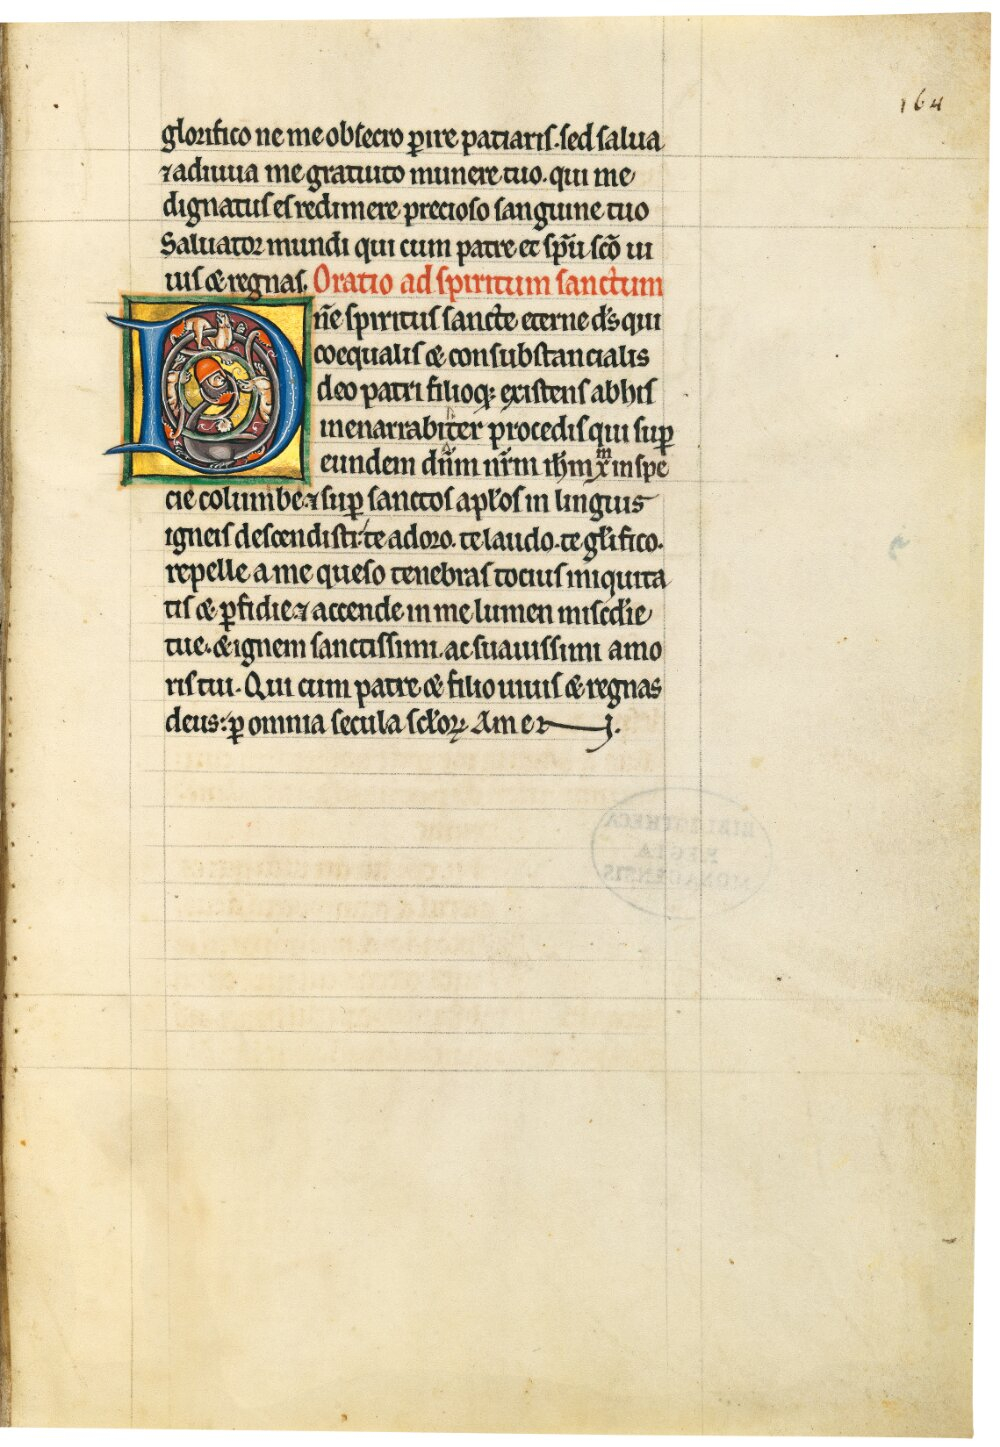 164
glorifico ne me obsecro ꝑire patiaris. sed salua
⁊ adiuua me gratuito munere tuo. qui me
dignatus es redimere precioso sanguine tuo
Saluator mundi qui cum patre et sp̄u sc̄o ui
uis & regnas. Oratio ad spiritum sanctum
Dn̄e spiritus sancte eterne d̄s qui
coequalis & consubstancialis
deo patri filioq; existens ab his
inenarrabiliter procedis qui suꝑ
eundem dn̄m nr̄m ih̄m xm in spe
cie columbe. ⁊ suꝑ sanctos apl̄os in linguis
igneis descendisti. te adoro. te laudo. te gl̄ifico.
repelle a me queso tenebras tocius iniquita
tis & ꝑfidie. ⁊ accende in me lumen mis̄cdie
tue. & ignem sanctissimi. ac suauissimi amo
ris tui. Qui cum patre & filio uiuis & regnas
deus. ꝑ omnia secula scl̄oꝝ Amen.
BIBLIOTHECA
REGIA
MONACENSIS